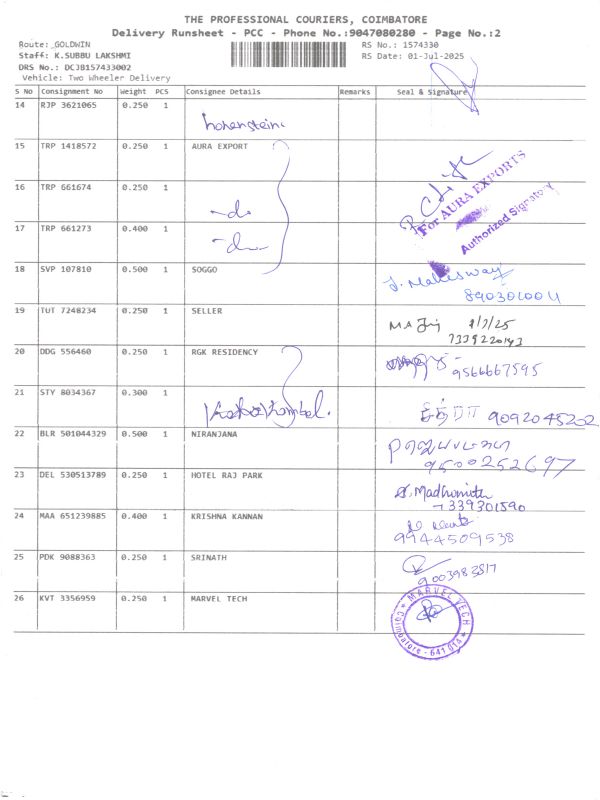 THE PROFESSIONAL COURIERS, COIMBATORE
Delivery Runsheet - PCC - Phone No.:9047080280 - Page No.:2
Route: GOLDWIN
RS No.: 1574330
Staff: K.SUBBU LAKSHMI
RS Date: 01-Jul-2025
DRS No.: DCJB157433002
Vehicle: Two Wheeler Delivery
S No Consignment No Weight PCS Consignee Details Remarks Seal & Signature
14 RJP 3621065 0.250 1
hohenstein
15 TRP 1418572 0.250 1 AURA EXPORT
16 TRP 661674 0.250 1
-do
For AURA EXPORTS
Authorized Signatory
17 TRP 661273 0.400 1
-do-
18 SVP 107810 0.500 1 SOGGO
8903010011
19 TUT 7248234 0.250 1 SELLER
1/7/25
7339220143
20 DDG 556460 0.250 1 RGK RESIDENCY
9566667595
21 STY 8034367 0.300 1
9092045202
22 BLR 501044329 0.500 1 NIRANJANA
9500252697
23 DEL 530513789 0.250 1 HOTEL RAJ PARK
7339301590
24 MAA 651239885 0.400 1 KRISHNA KANNAN
9944509538
25 PDK 9088363 0.250 1 SRINATH
9003983817
26 KVT 3356959 0.250 1 MARVEL TECH
MARVEL TECH
Coimbatore - 641 014